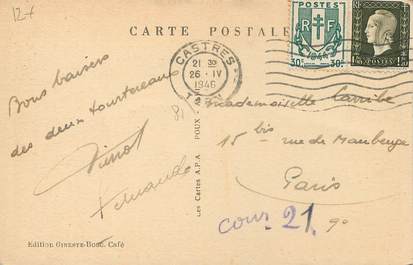 12-f
CARTE POSTALE
POSTES
RF
30c 30c
RF
POSTES
CASTRES
21 30
26 - IV
1946
TARN
Bons baisers
des deux tourtereaux
Pierrot
Fernande
81
Mademoiselle Larribe
15 bis rue de Maubeuge
Paris
cour 21. 9e
Les Cartes A.P.A. POUX
Edition GINESTE-BOSC, Café